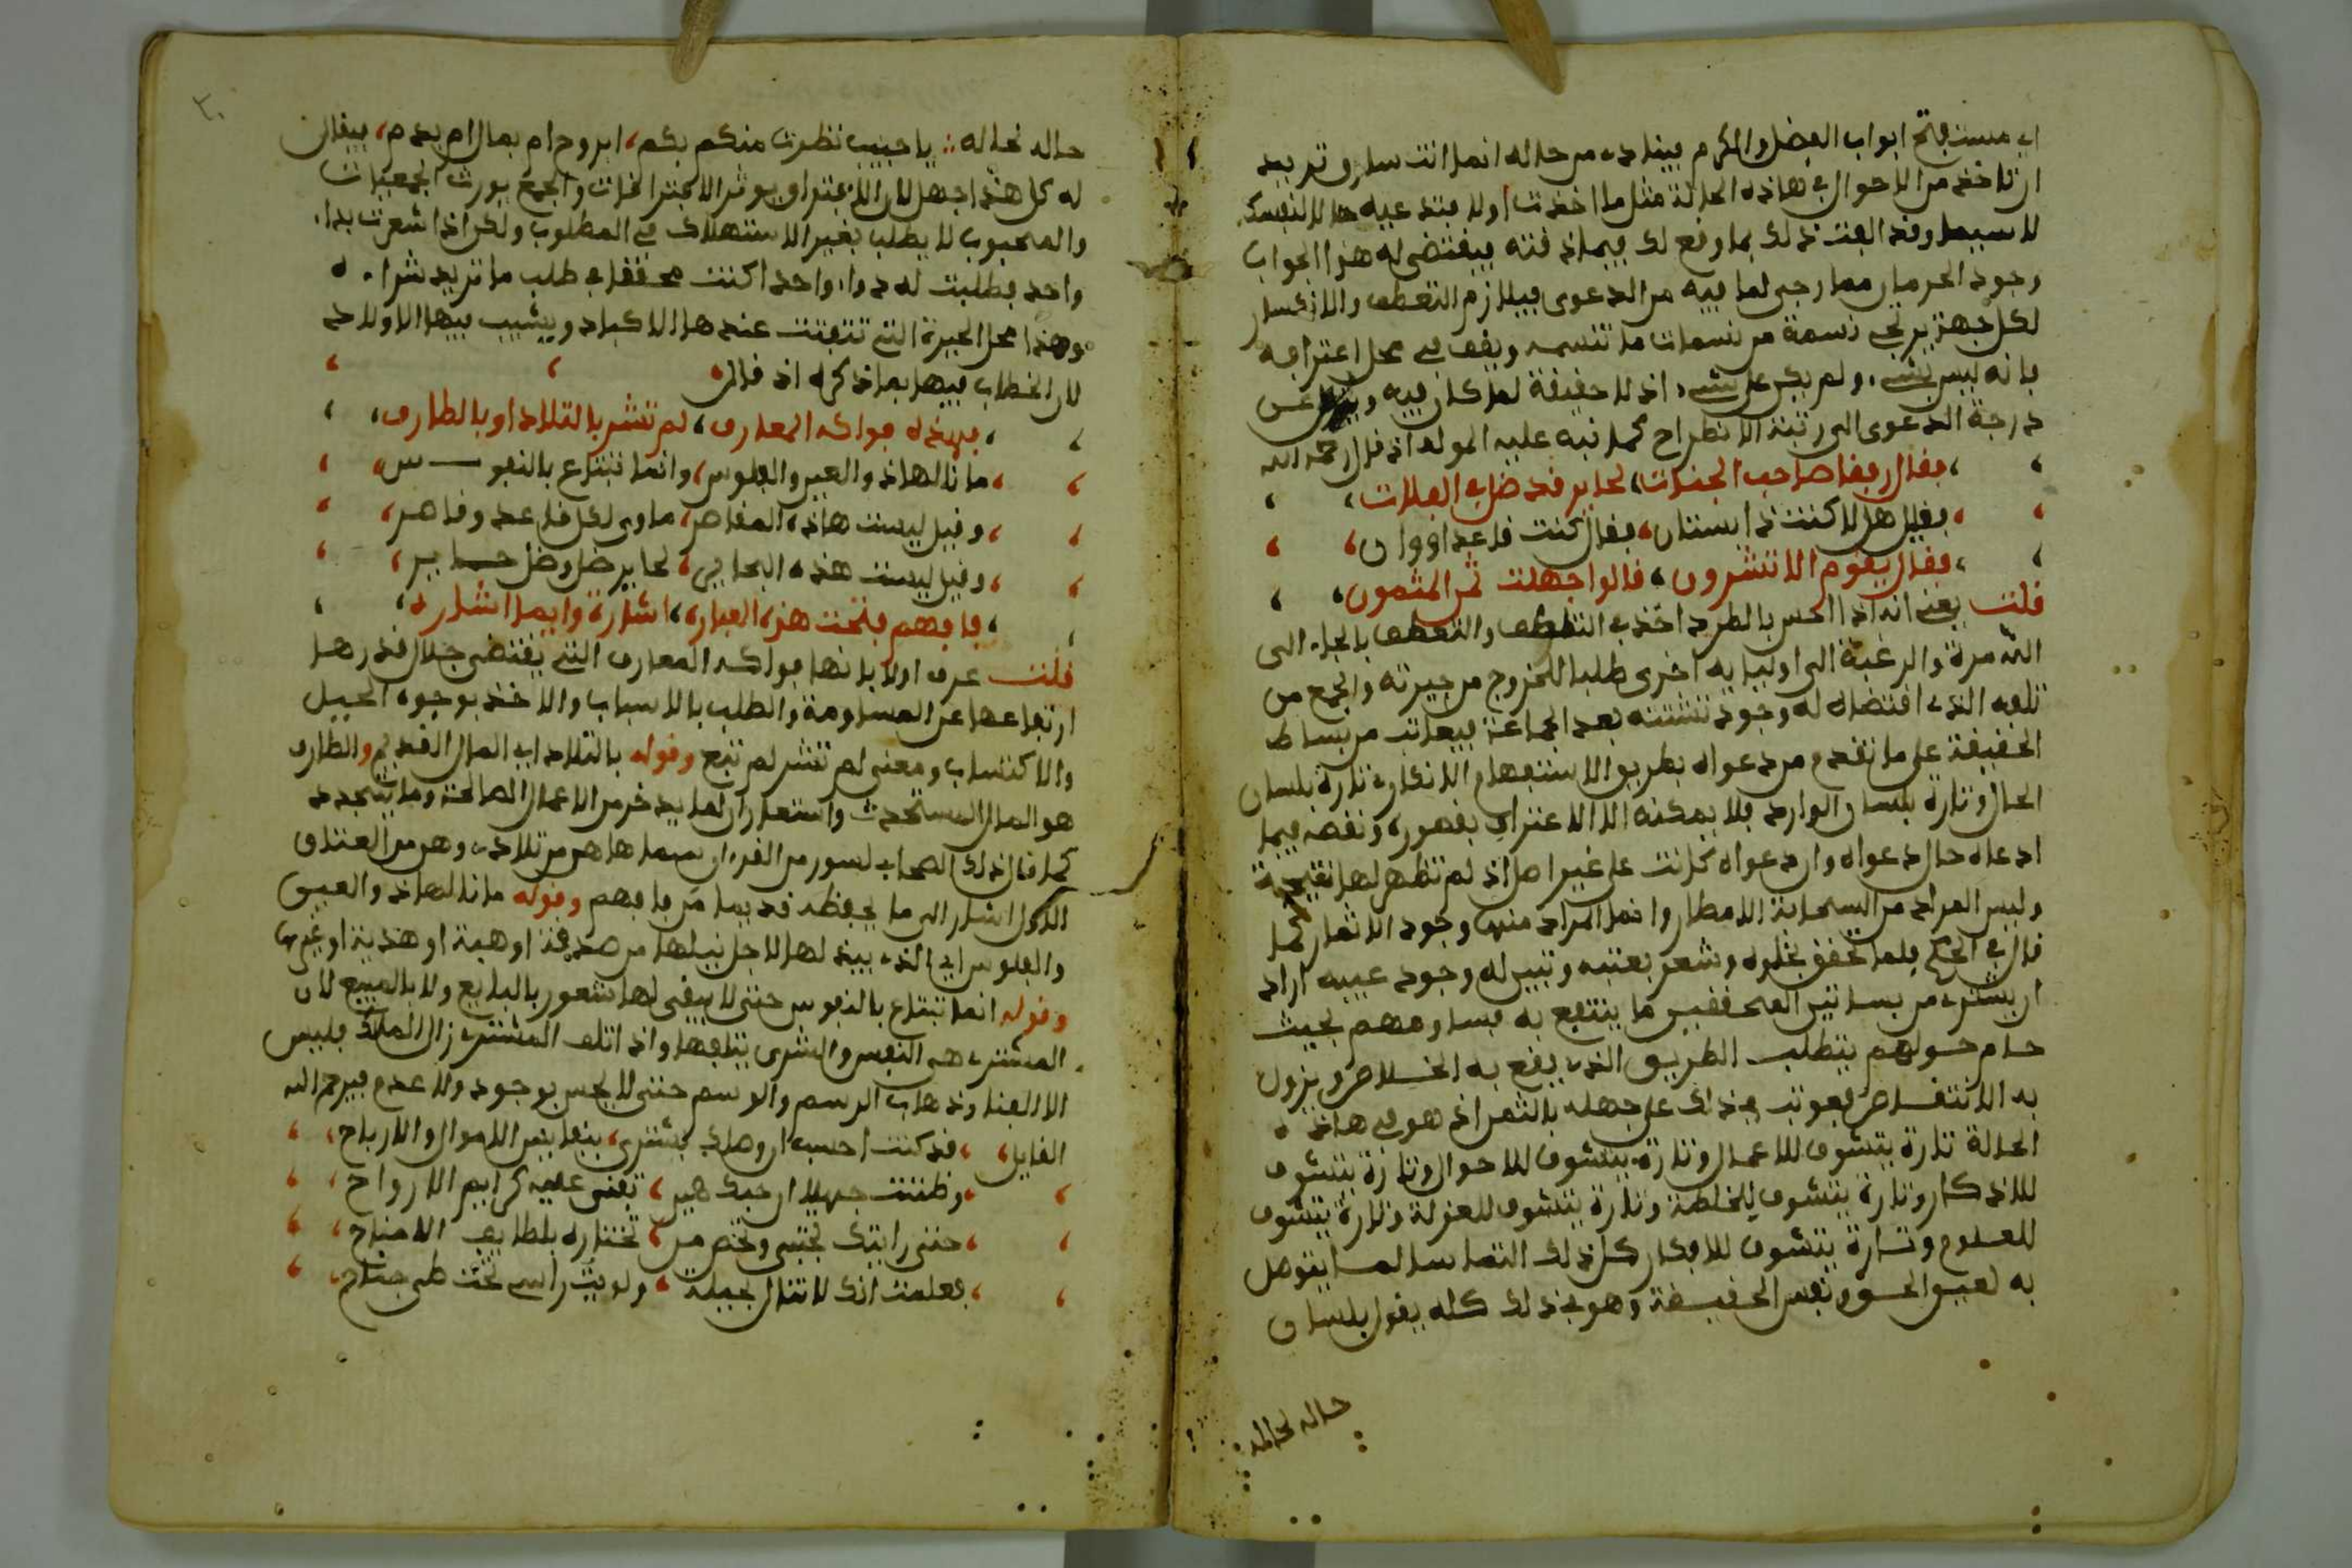 اي مستفتح ابواب الفضل والكرم فينادى من حاله انما انت سارق تريد
ان تاخذ من الاحوال في هاذه الحالة مثل ما اخذت اولا فتدعيه حالا لنفسك
لاسيما وقد الفت ذلك بما وقع لك فيما ذقته فيقتضي له هذا الجواب
وجود الحرمان مما رجى لما فيه من الدعوى فيلازم التعطف والانكسار
لكل جهة يرتجى نسمة من نسمات ما تنسمه ويقف في محل اعترافه
بانه ليس بشيء ولم يكن على شيء اذ لا حقيقة لما كان فيه عن
درجة الدعوى الى رتبة الانطراح كما نبه عليه المولف اذ قال رحمه الله
فقال رفقا صاحب الجنات لحاير قد ضل في الفلات
فقيل هل لا كنت ذا استان فقال كنت قاعدا ووان
فقال يقوم الا تشرون قالوا جهلت ثمن المثمون
قلت يعني انه اذا احس بالطرد اخذ في التلطف والتعطف بالجاء الى
الثمرة والرغبة الى اوليايه اخرى طلبا للخروج من حيرته والجمع من
تلفه الذي اقتضاه له وجود تشتته بعد الجماعة فيعاتب من بساط
الحقيقة على ما تقدم من دعواه بطريق الاستفهام الانكاري تارة بلسان
الحال وتارة بلسان الوارد فلا يمكنه الا الاعتراف بقصوره ونقصه فيما
ادعاه حال دعواه وان دعواه كانت على غير اصل اذ لم تظهر لها نتيجة
وليس المراد من السحابة الامطار وانما المراد منها وجود الاثمار كما
قال في الحكم فلما تحقق بخلوه وشعر بعتبه وتبين له وجود عيبه اراد
ان يشتري من بساتين المحققين ما ينتفع به فساومهم بحيث
حام حولهم يتطلب الطريق الذي يقع به الخلاص ويزول
به الانتقاص فعوتب في ذلك على جهله بالثمن اذ هو في هاذه
الحالة تارة يتشوف للاعمال وتارة يتشوف للاحوال وتارة يتشوف
للاذكار وتارة يتشوف للخلطة وتارة يتشوف للعزلة وتارة يتشوف
للعلوم وتارة يتشوف للافكار كل ذلك التماسا لما يتوصل
به لعين الحق ونفس الحقيقة وهو في ذلك كله يقول بلسان
حاله لخاله
٢٠
حاله لخاله يا حبيب نظرت منكم بكم ابروح ام بمال ام بدم فيقال
له كل هذا جهل لان الافتراق يورث الافتراقات والجمع يورث الجمعيات
والمحبوب لا يطلب بغير الاستهلاك في المطلوب ولكن اذا شعرت بداء
واحد فطلبت له دواء واحدا كنت محققا في طلب ما تريد شراءه
وهذا محل الحيرة التي تتفتت عندها الاكباد ويشيب فيها الاولاد
لان الخطاب فيها بما ذكره اذ قال
فهذه فواكه المعارف لم تشر بالتلاد او بالطارف
ما نالها ذو العين والفلوس وانما تبتاع بالنفوس
وقيل ليست هاذه المفاصر ماوى لكل قاعد وقاصر
وقيل ليست هذه البحابح لحاير ضل وظل حاير
فافهم فتحت هذه العبارة اشارة وايما اشارة
قلت عرف اولا بانها فواكه المعارف التي يقتضي جلال قدرها
ارتفاعها عن المساومة والطلب بالاسباب والاخذ بوجوه الحيل
والاكتساب ومعنى لم تشر لم تبع وقوله بالتلاد اي المال القديم والطارف
هو المال المستحدث واستعاران لما يدخر من الاعمال الصالحة وما يتجدد
كما قال ذلك الصحابي لسور من القرءان سماها هن من تلادي وهن من العتاق
الاول اشار الى ما يحفظه قديما مر فافهم وقوله ما نالها ذو العين
والفلوس اي الذي يبذلها لاجل نيلها من صدقة او هبة او هدية او غيرها
وقوله انما تبتاع بالنفوس حتى لا يبقى لها شعور بالبايع ولا بالمبيع لان
المشتري هي النفس والشرى يتلفها واذا تلف المشتري زال الملك فليس
الا الفناء وذهاب الرسم والوسم حتى لا يحس بوجود ولا عدم فيرحم الله
القايل قد كنت احسب ان وصلك يشترى بنفايس الاموال والارباح
وظننت جهلا ان حبك هين تفنى عليه كرايم الارواح
حتى رايتك تجتبي وتخص من تختاره بلطايف الامناح
فعلمت انك لا تنال بحيلة ولويت راسي تحت طي جناح